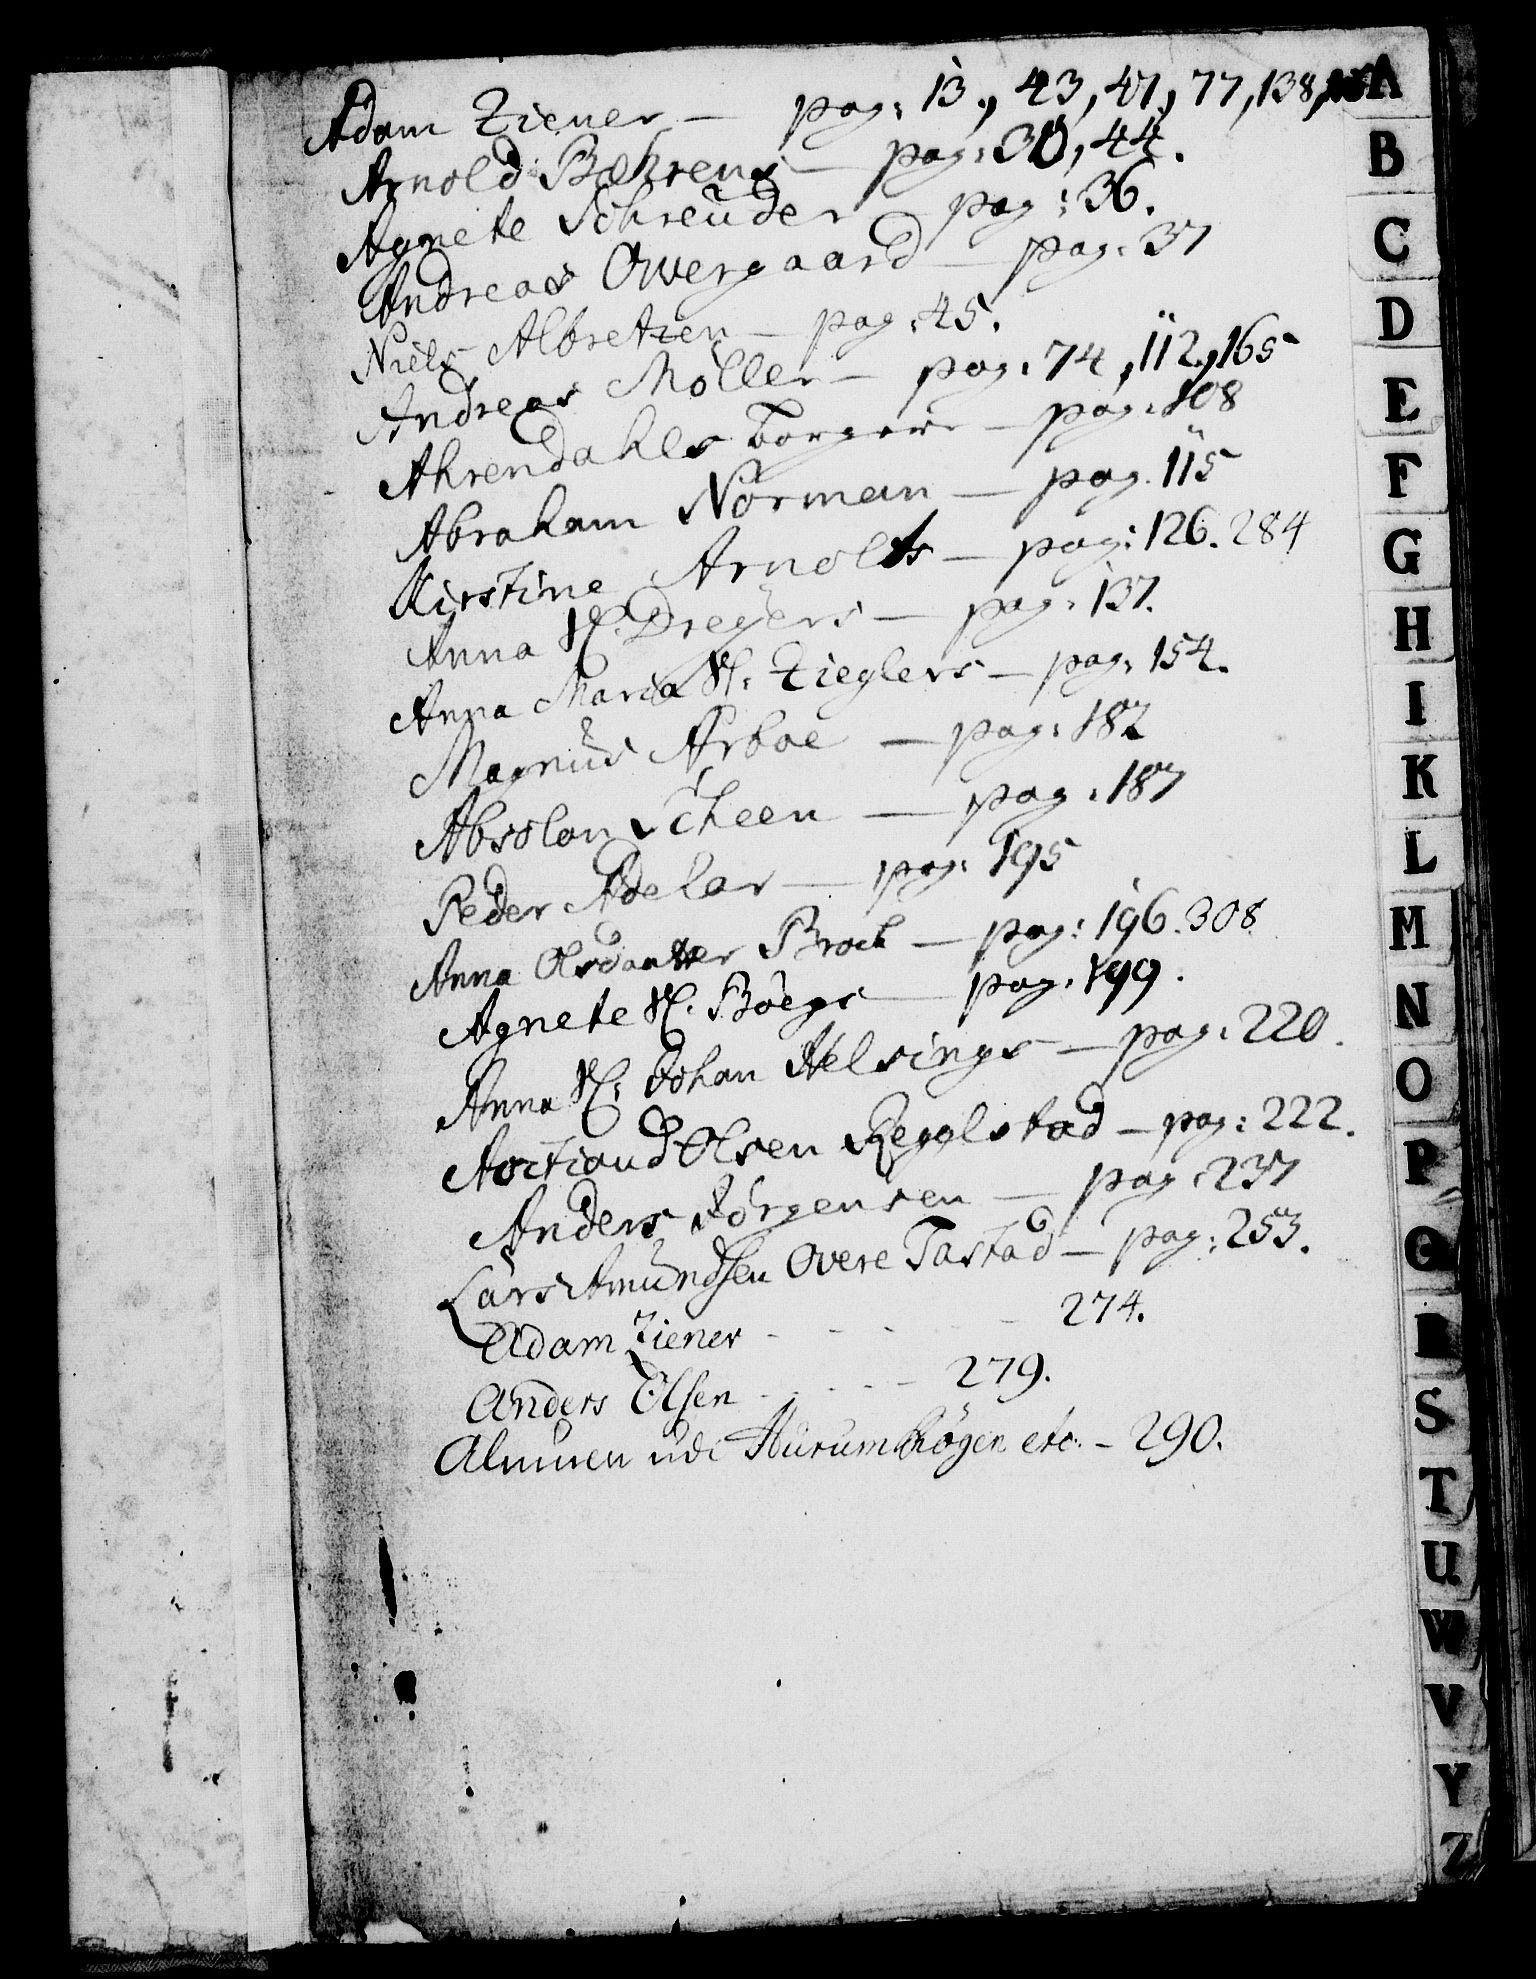 Adam Ziener — pag: 13, 43, 47, 77, 138,
Arnold Behrens — pag: 30, 44.
Agnete Schreüder — pag: 36.
Andreas Overgaard — pag: 37
Niels Albretzen — pag: 45.
Andreas Möller — pag: 74, 112, 165
Ahrendahls — pag: 108
Abraham Norman — pag. 115
Kirstine Arnolts — pag: 126. 284
Anna Sl. Dreyers — pag: 137.
Anna Maria Sl. Zieglers — pag: 154.
Magnüs Arboe — pag: 182
Absolon Scheen — pag: 187
Peder Adelar — pag: 195
Anna Olsdaatter Brock — pag: 196. 308
Agnete Sl. Böegs — pag: 199.
Anna Sl. Johan Helsings — pag: 220.
Olsen — pag: 222.
Anders Jörgensen — pag: 237
Lars Amündsen Overe Tastad — pag: 253.
Adam Ziener - - - - - 274.
Anders Olsen - - - - 279.
Almuen udi Hürum etc: - 290.
A
B
C
D
E
F
G
H
I
K
L
M
N
O
P
Q
R
S
T
U
W
V
Y
Z